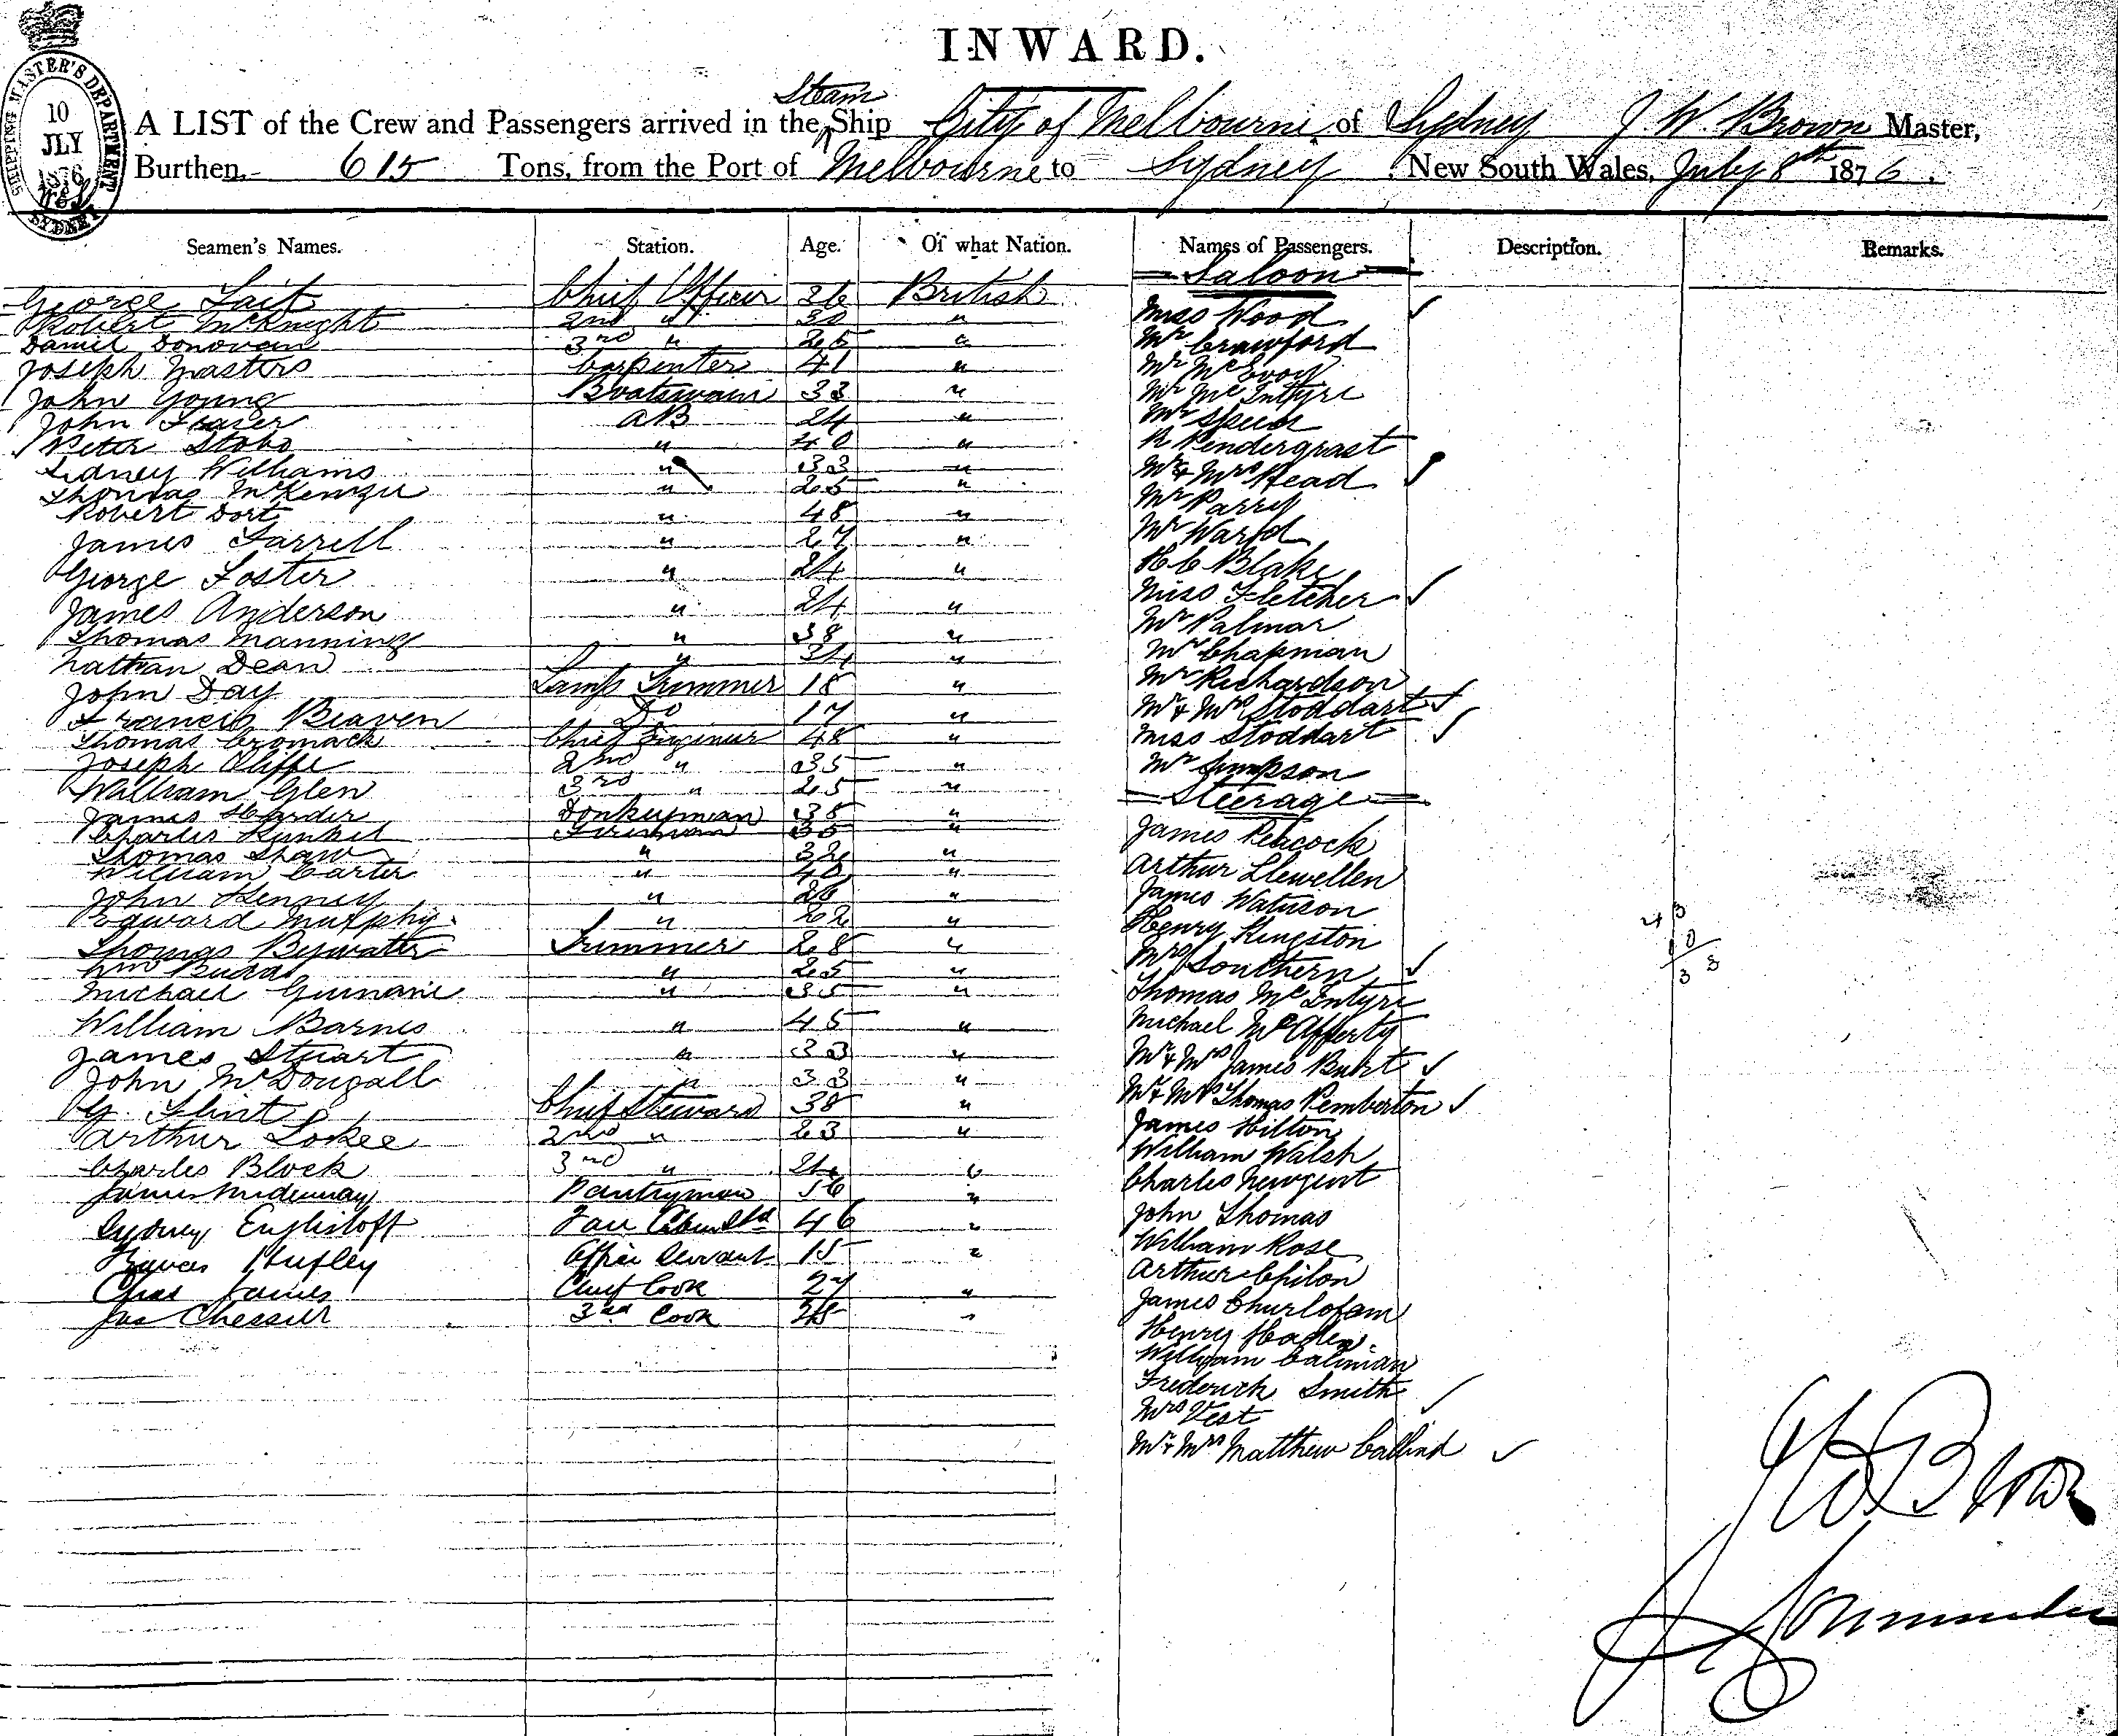 INWARD.
SHIPPING MASTER'S DEPARTMENT
10
JLY
1876
SYDNEY
A LIST of the Crew and Passengers arrived in the Steam Ship City of Melbourne of Sydney J. W. Brown Master,
Burthen, 615 Tons, from the Port of Melbourne to Sydney, New South Wales, July 8th 1876.
Seamen's Names. Station. Age. Of what Nation. Names of Passengers. Description. Remarks.
George Tait Chief Officer 36 British
Robert McKnight 2nd " 30 "
Daniel Donovan 3rd " 25 "
Joseph Masters Carpenter 41 "
John Young Boatswain 33 "
John Fraser AB 24 "
Peter Stobo " 40 "
Sidney Williams " 33 "
Thomas McKenzie " 25 "
Robert Dort " 48 "
James Farrell " 27 "
George Foster " 24 "
James Anderson " 24 "
Thomas Manning " 38 "
Nathan Dean " 34 "
John Day Lamp Trimmer 18 "
Francis Beaven Do 17 "
Thomas Cromack Chief Engineer 48 "
Joseph Cliffe 2nd " 35 "
William Glen 3rd " 25 "
James Harder Donkeyman 38 "
Charles Kunkel Fireman 35 "
Thomas Shaw " 32 "
William Carter " 40 "
John Kenney " 26 "
Edward Murphy " 22 "
Thomas Bywater Trimmer 28 "
Wm " 25 "
Michael " 35 "
William Barnes " 45 "
James Stuart " 33 "
John McDougall " 33 "
G. Flint Chief Steward 38 "
Arthur Lokee 2nd " 23 "
Charles Block 3rd " 24 "
James Pantryman 56 "
Sydney Englistoft 46 "
Office Servant 15 "
Chas James Chief Cook 27 "
Jas Chessell 3rd Cook 28 "
Saloon
Miss Wood
Mr Crawford
Mr McEvoy
Mr McIntyre
Mr Speed
R Pendergrast
Mr & Mrs Head
Mr Parry
Mr Warfd
H C Blake
Miss Fletcher
Mr Palmar
Mr Chapman
Mr Richardson
Mr & Mrs Stoddart
Miss Stoddart
Mr Simpson
Steerage
James Peacock
Arthur Llewellen
James Watuson
Henry Kingston
Mrs Southern
Thomas McIntyre
Michael McAfferty
Mr & Mrs James Burt
Mr & Mrs Thomas Pemberton
James Hilton
William Walsh
Charles Newgent
John Thomas
William Rose
Arthur Chilon
James Churlofam
Henry Haden
William Caliman
Frederick Smith
Mrs Vest
Mr & Mrs Matthew
J W Brown